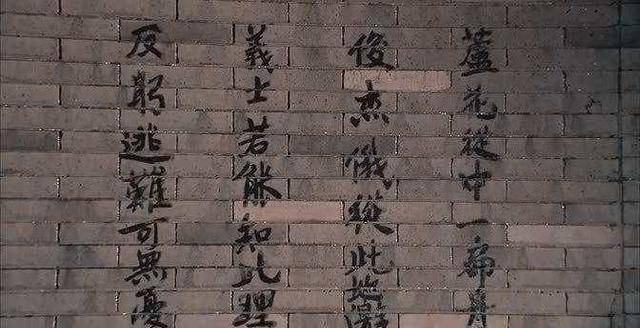 蘆花從中一扁舟
俊杰俄從此地遊
義士若能知此理
反躬逃難可無憂